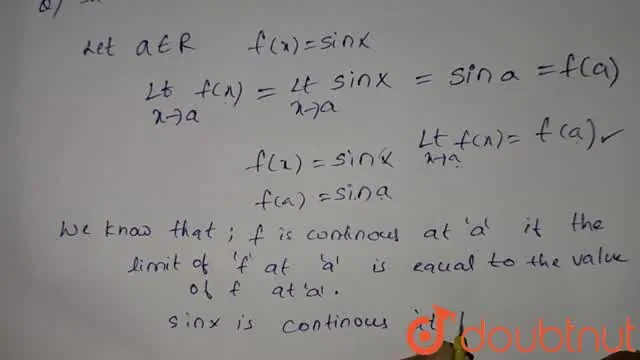 Q)
Let a∈R f(x)=sinx
Lt x→a f(x) = Lt x→a sinx = sin a = f(a)
Lt x→a f(x)= f(a) ✓
f(x) = sinx
f(a) = sina
We know that; f is continous at 'a' if the
limit of 'f' at 'a' is equal to the value
of f at 'a'.
sinx is continous if
doubtnut